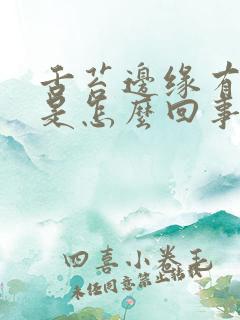 舌苔邊缘有
是怎麼回事
四喜小卷毛
未经同意禁止转载